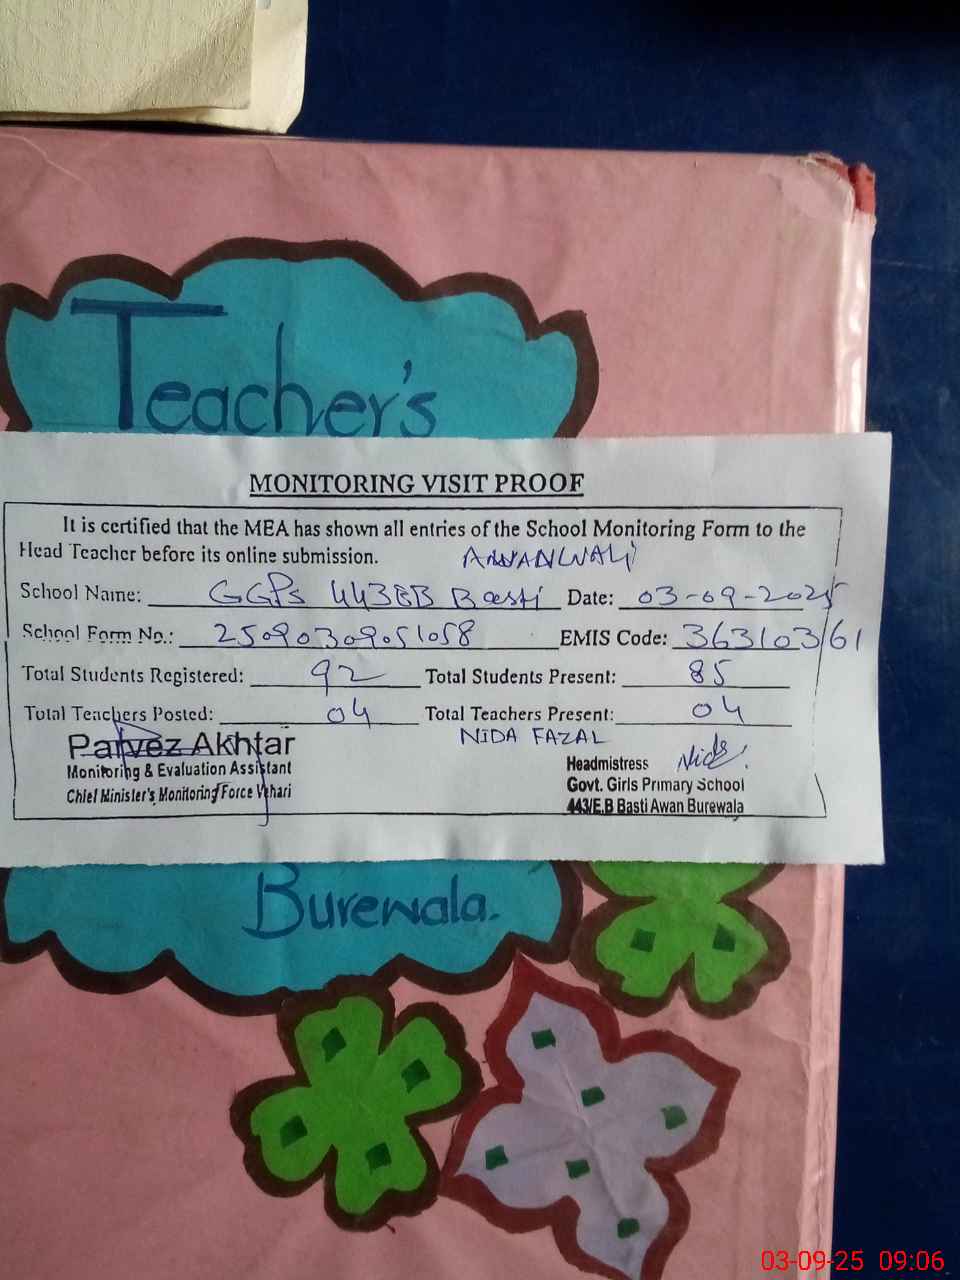 Teacher's
MONITORING VISIT PROOF
It is certified that the MEA has shown all entries of the School Monitoring Form to the
Head Teacher before its online submission. AWANWALI
School Name: GGPS 443EB Basti Date: 03-09-2025
School Form No.: 25090309051058 EMIS Code: 36310361
Total Students Registered: 92 Total Students Present: 85
Total Teachers Posted: 04 Total Teachers Present: 04
Parvez Akhtar NIDA FAZAL
Monitoring & Evaluation Assistant Headmistress Nida
Chief Minister's Monitoring Force Vehari Govt. Girls Primary School
443/E.B Basti Awan Burewala
Burewala.
03-09-25 09:06